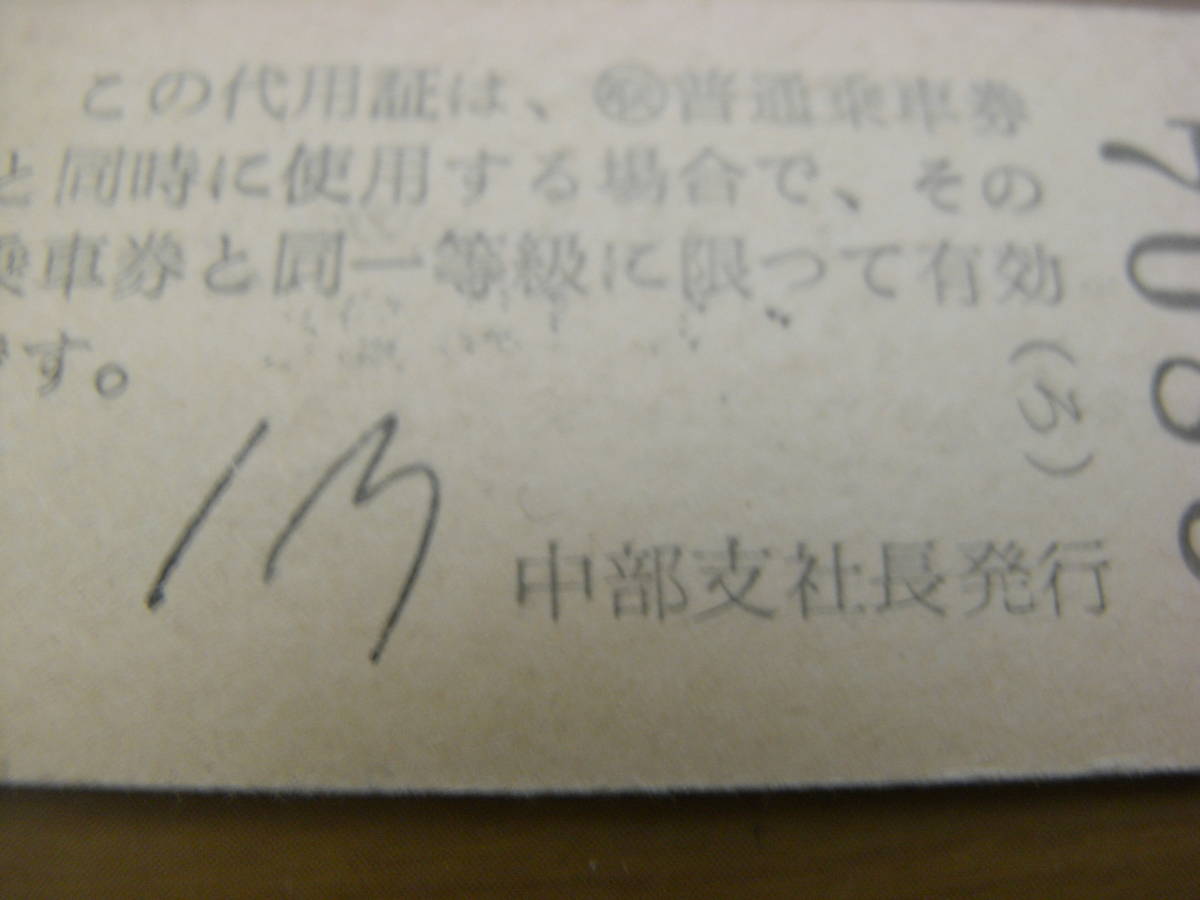 この代用証は、普通乗車券
と同時に使用する場合で、その
乗車券と同一等級に限つて有効
です。
(ろ)
中部支社長発行
708